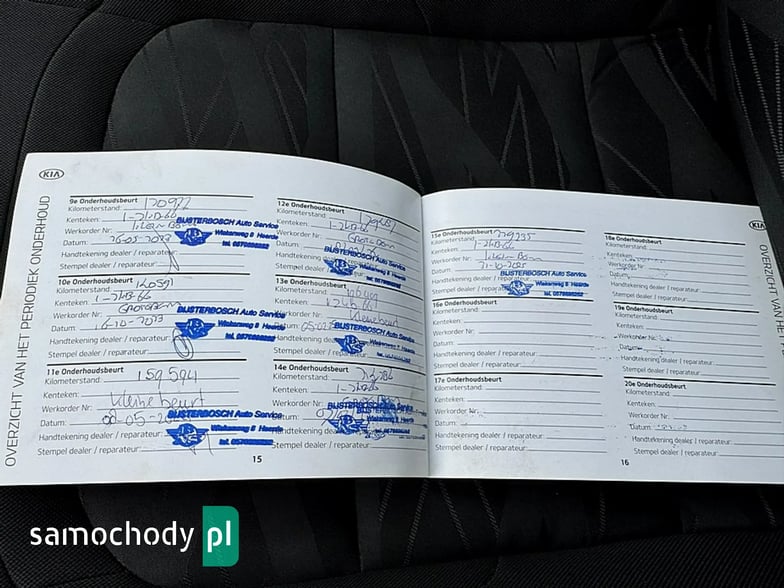 KIA
OVERZICHT VAN HET PERIODIEK ONDERHOUD
9e Onderhoudsbeurt
Kilometerstand:
Kenteken:
Werkorder Nr:
Datum: 26-05-2023
Handtekening dealer / reparateur:
Stempel dealer / reparateur:
BUSTERBOSCH Auto Service
Wiekenweg 8 Heerde
tel. 0578695252
10e Onderhoudsbeurt
Kilometerstand:
Kenteken:
Werkorder Nr:
Datum: 16-10-2023
Handtekening dealer / reparateur:
Stempel dealer / reparateur:
BUSTERBOSCH Auto Service
Wiekenweg 8 Heerde
tel. 0578695252
11e Onderhoudsbeurt
Kilometerstand: 159594
Kenteken:
Werkorder Nr: kleine beurt
Datum: 08-05-
Handtekening dealer / reparateur:
Stempel dealer / reparateur:
BUSTERBOSCH Auto Service
Wiekenweg 8 Heerde
tel. 0578695252
12e Onderhoudsbeurt
Kilometerstand:
Kenteken:
Werkorder Nr:
Datum:
Handtekening
Stempel dealer / reparateur:
BUSTERBOSCH Auto Service
Wiekenweg 8 Heerde
13e Onderhoudsbeurt
Kilometerstand:
Kenteken:
Werkorder Nr: Kleine beurt
Datum: 05-02
Handtekening
Stempel dealer / reparateur:
BUSTERBOSCH Auto Service
Wiekenweg 8 Heerde
14e Onderhoudsbeurt
Kilometerstand:
Kenteken:
Werkorder Nr:
Datum:
Handtekening dealer
Stempel dealer / reparateur:
BUSTERBOSCH Auto Service
Wiekenweg 8 Heerde
15
15e Onderhoudsbeurt
Kilometerstand:
Kenteken:
Werkorder Nr:
Datum:
Handtekening dealer / reparateur:
Stempel dealer
BUSTERBOSCH Auto Service
Wiekenweg 8 Heerde
tel. 0578695252
16e Onderhoudsbeurt
Kilometerstand:
Kenteken:
Werkorder Nr:
Datum:
Handtekening dealer / reparateur:
Stempel dealer / reparateur:
17e Onderhoudsbeurt
Kilometerstand:
Kenteken:
Werkorder Nr:
Datum:
Handtekening dealer / reparateur:
Stempel dealer / reparateur:
18e Onderhoudsbeurt
Kilometerstand:
Kenteken:
Werkorder Nr:
Datum:
Handtekening dealer / reparateur:
Stempel dealer / reparateur:
19e Onderhoudsbeurt
Kilometerstand:
Kenteken:
Werkorder Nr:
Datum:
Handtekening dealer / reparateur:
Stempel dealer / reparateur:
20e Onderhoudsbeurt
Kilometerstand:
Kenteken:
Werkorder Nr:
Datum:
Handtekening dealer / reparateur:
Stempel dealer / reparateur:
16
KIA
OVERZICHT VAN HET
samochody pl